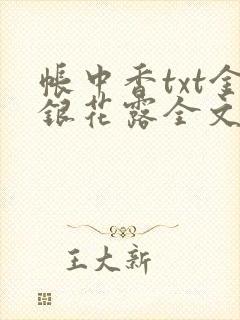 帳中香txt金
銀花露全文
王大新